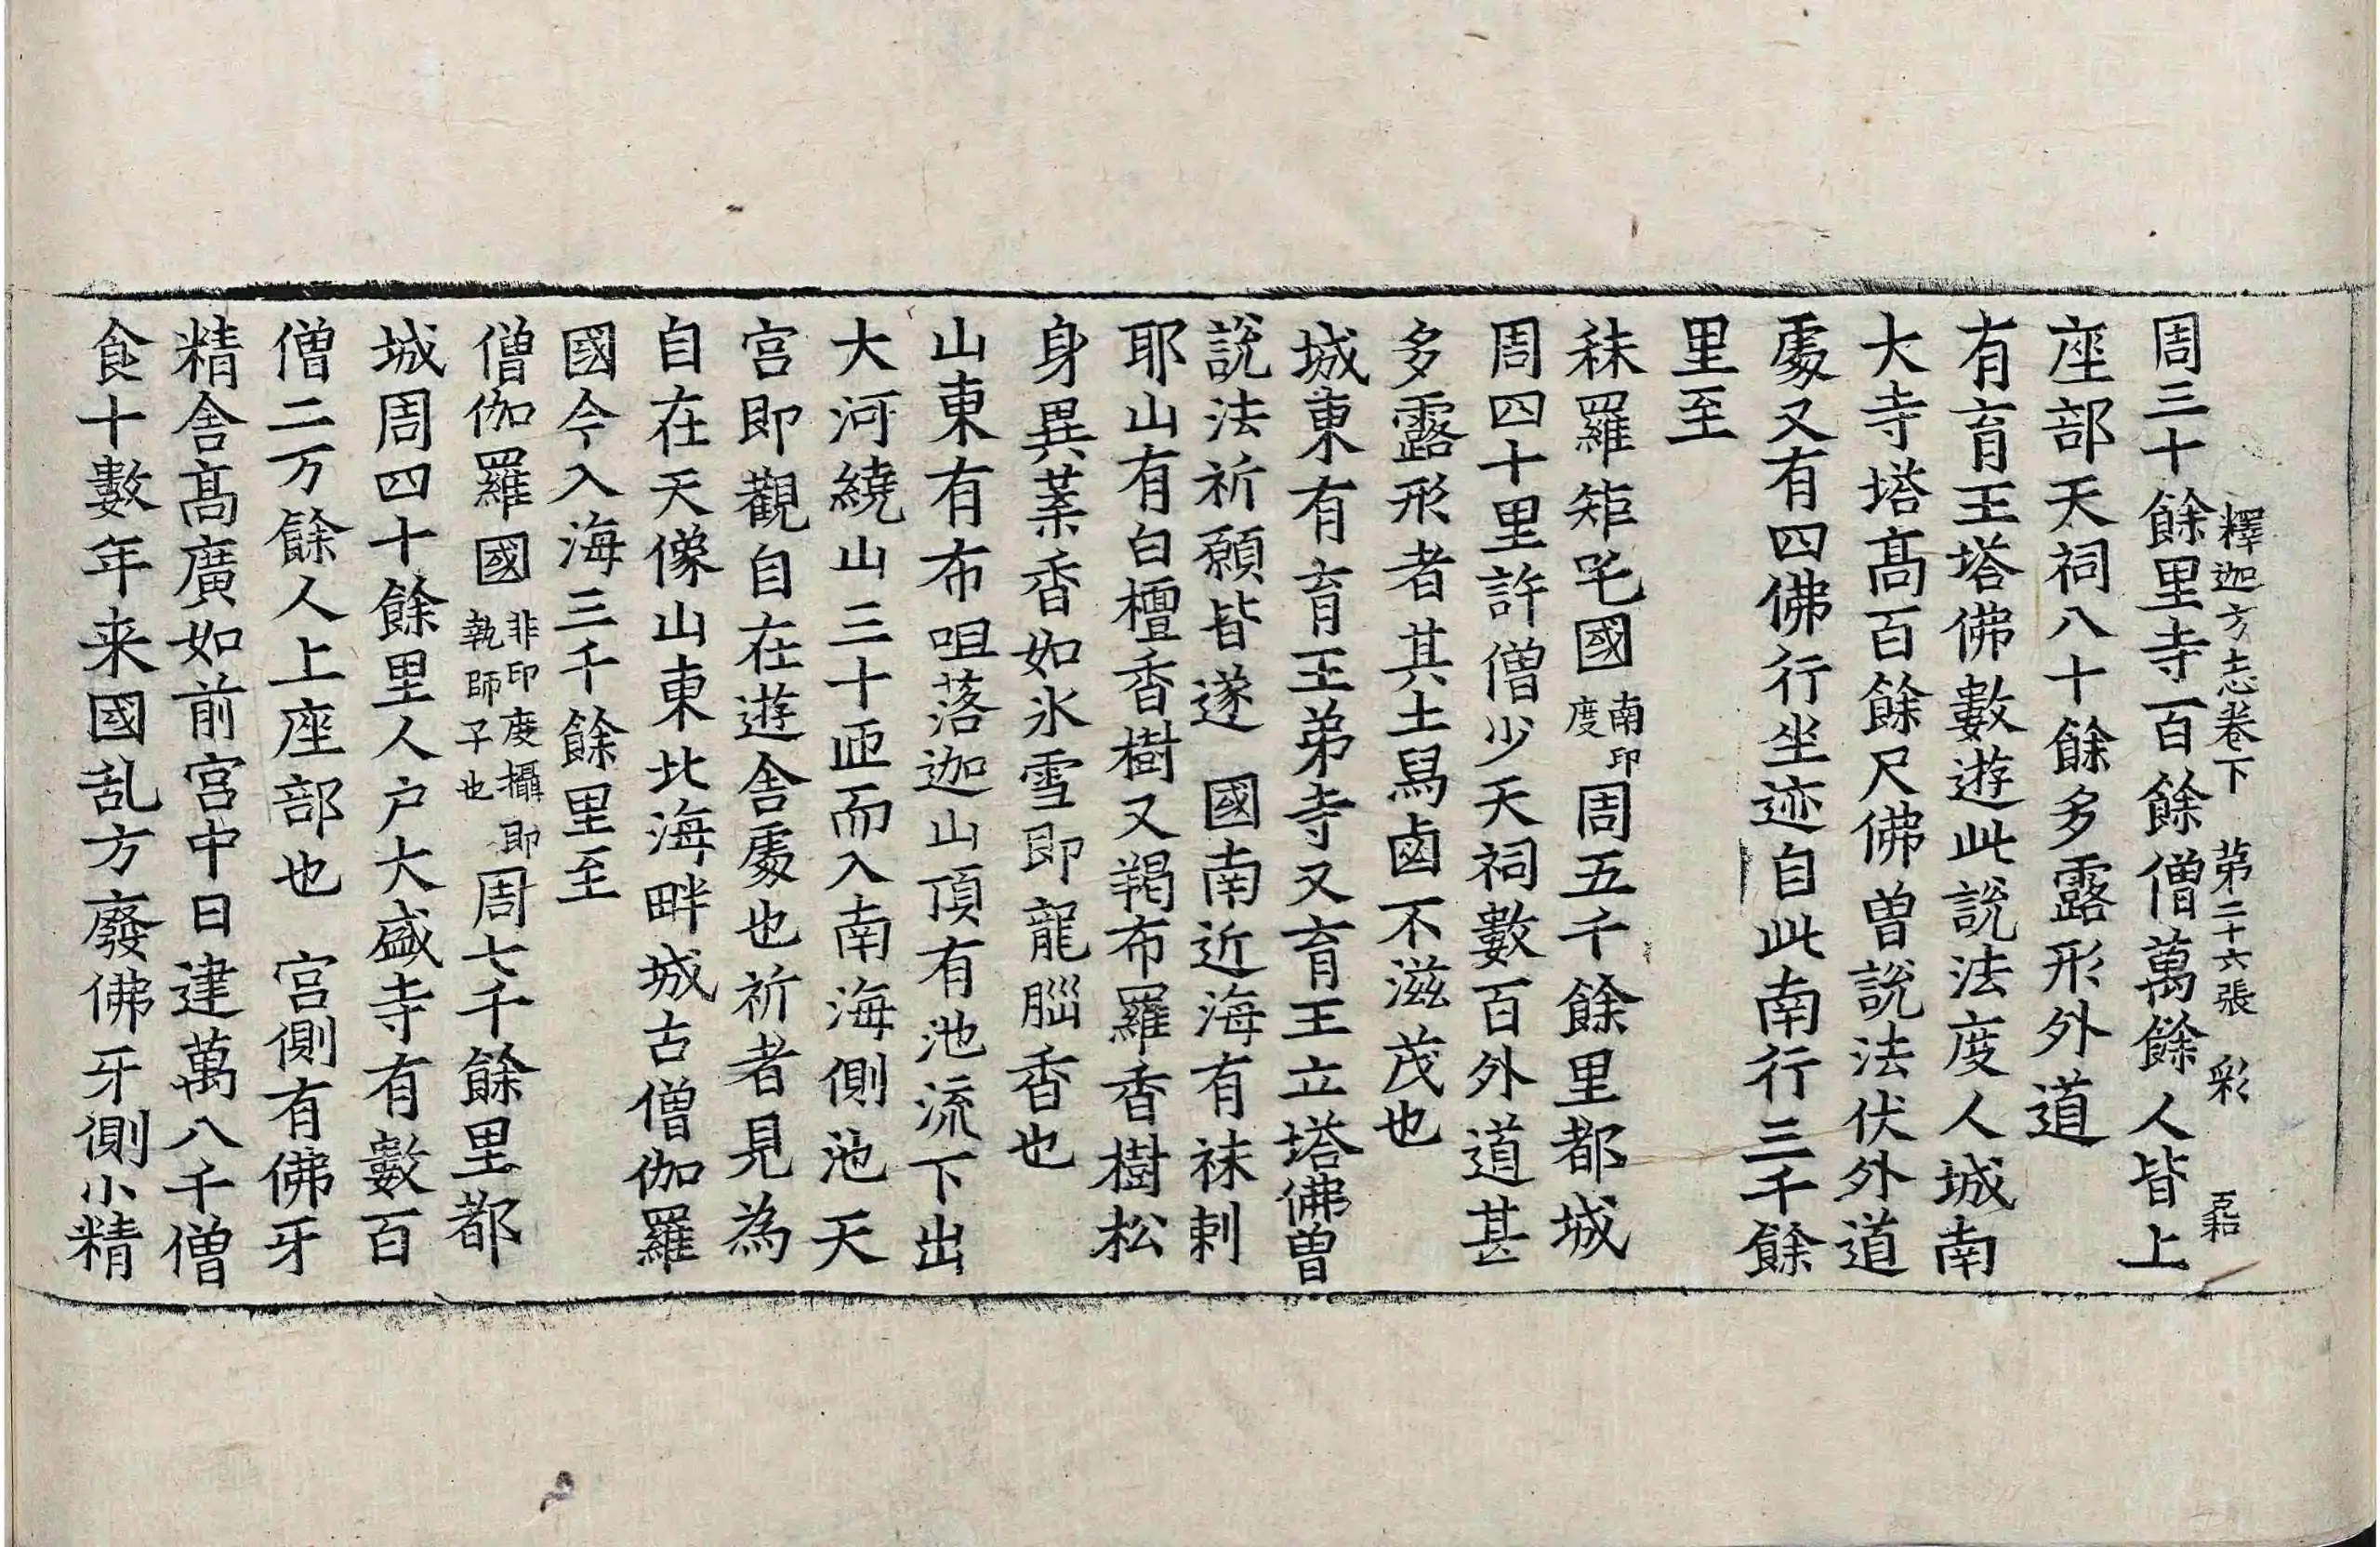 釋迦方志卷下　第二十六張　彩
周三十餘里寺一百餘僧萬餘人皆上
座部天祠八十餘多露形外道
有育王塔佛數遊此說法度人城南
大寺塔高百餘尺佛曽說法伏外道
處又有四佛行坐迹自此南行三千餘
里至
秣羅矩吒國南印度周五千餘里都城
周四十里許僧少天祠數百外道甚
多露形者其土舄鹵不滋茂也
城東有育王弟寺又育王立塔佛曽
說法祈願皆遂　國南近海有秣剌
耶山有白檀香樹又羯布羅香樹松
身異葉香如氷雪即龍腦香也
山東有布呾落迦山頂有池流下出
大河繞山三十匝而入南海側池天
宮即觀自在遊舍處也祈者見為
自在天像山東北海畔城古僧伽羅
國今入海三千餘里至
僧伽羅國非印度攝即執師子也周七千餘里都
城周四十餘里人户大盛寺有數百
僧二万餘人上座部也　宮側有佛牙
精舍高廣如前宮中日建萬八千僧
食十數年来國乱方廢佛牙側小精